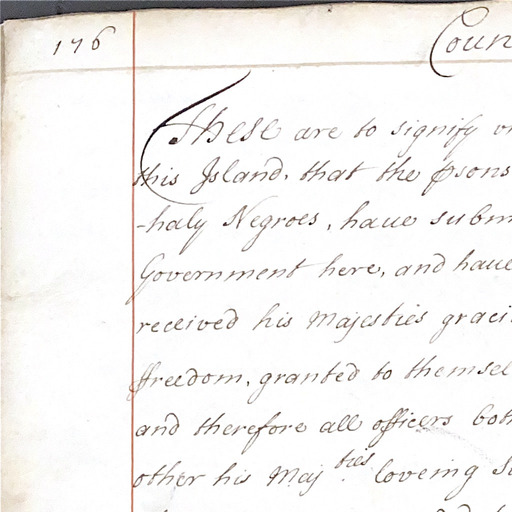 176
Coun
These are to signify
this Island, that the psons
-haly Negroes, haue subm
Government here, and haue
received his Majesties graci
ffreedom, granted to themsel
and therefore all officers both
other his Maj.ties loveing